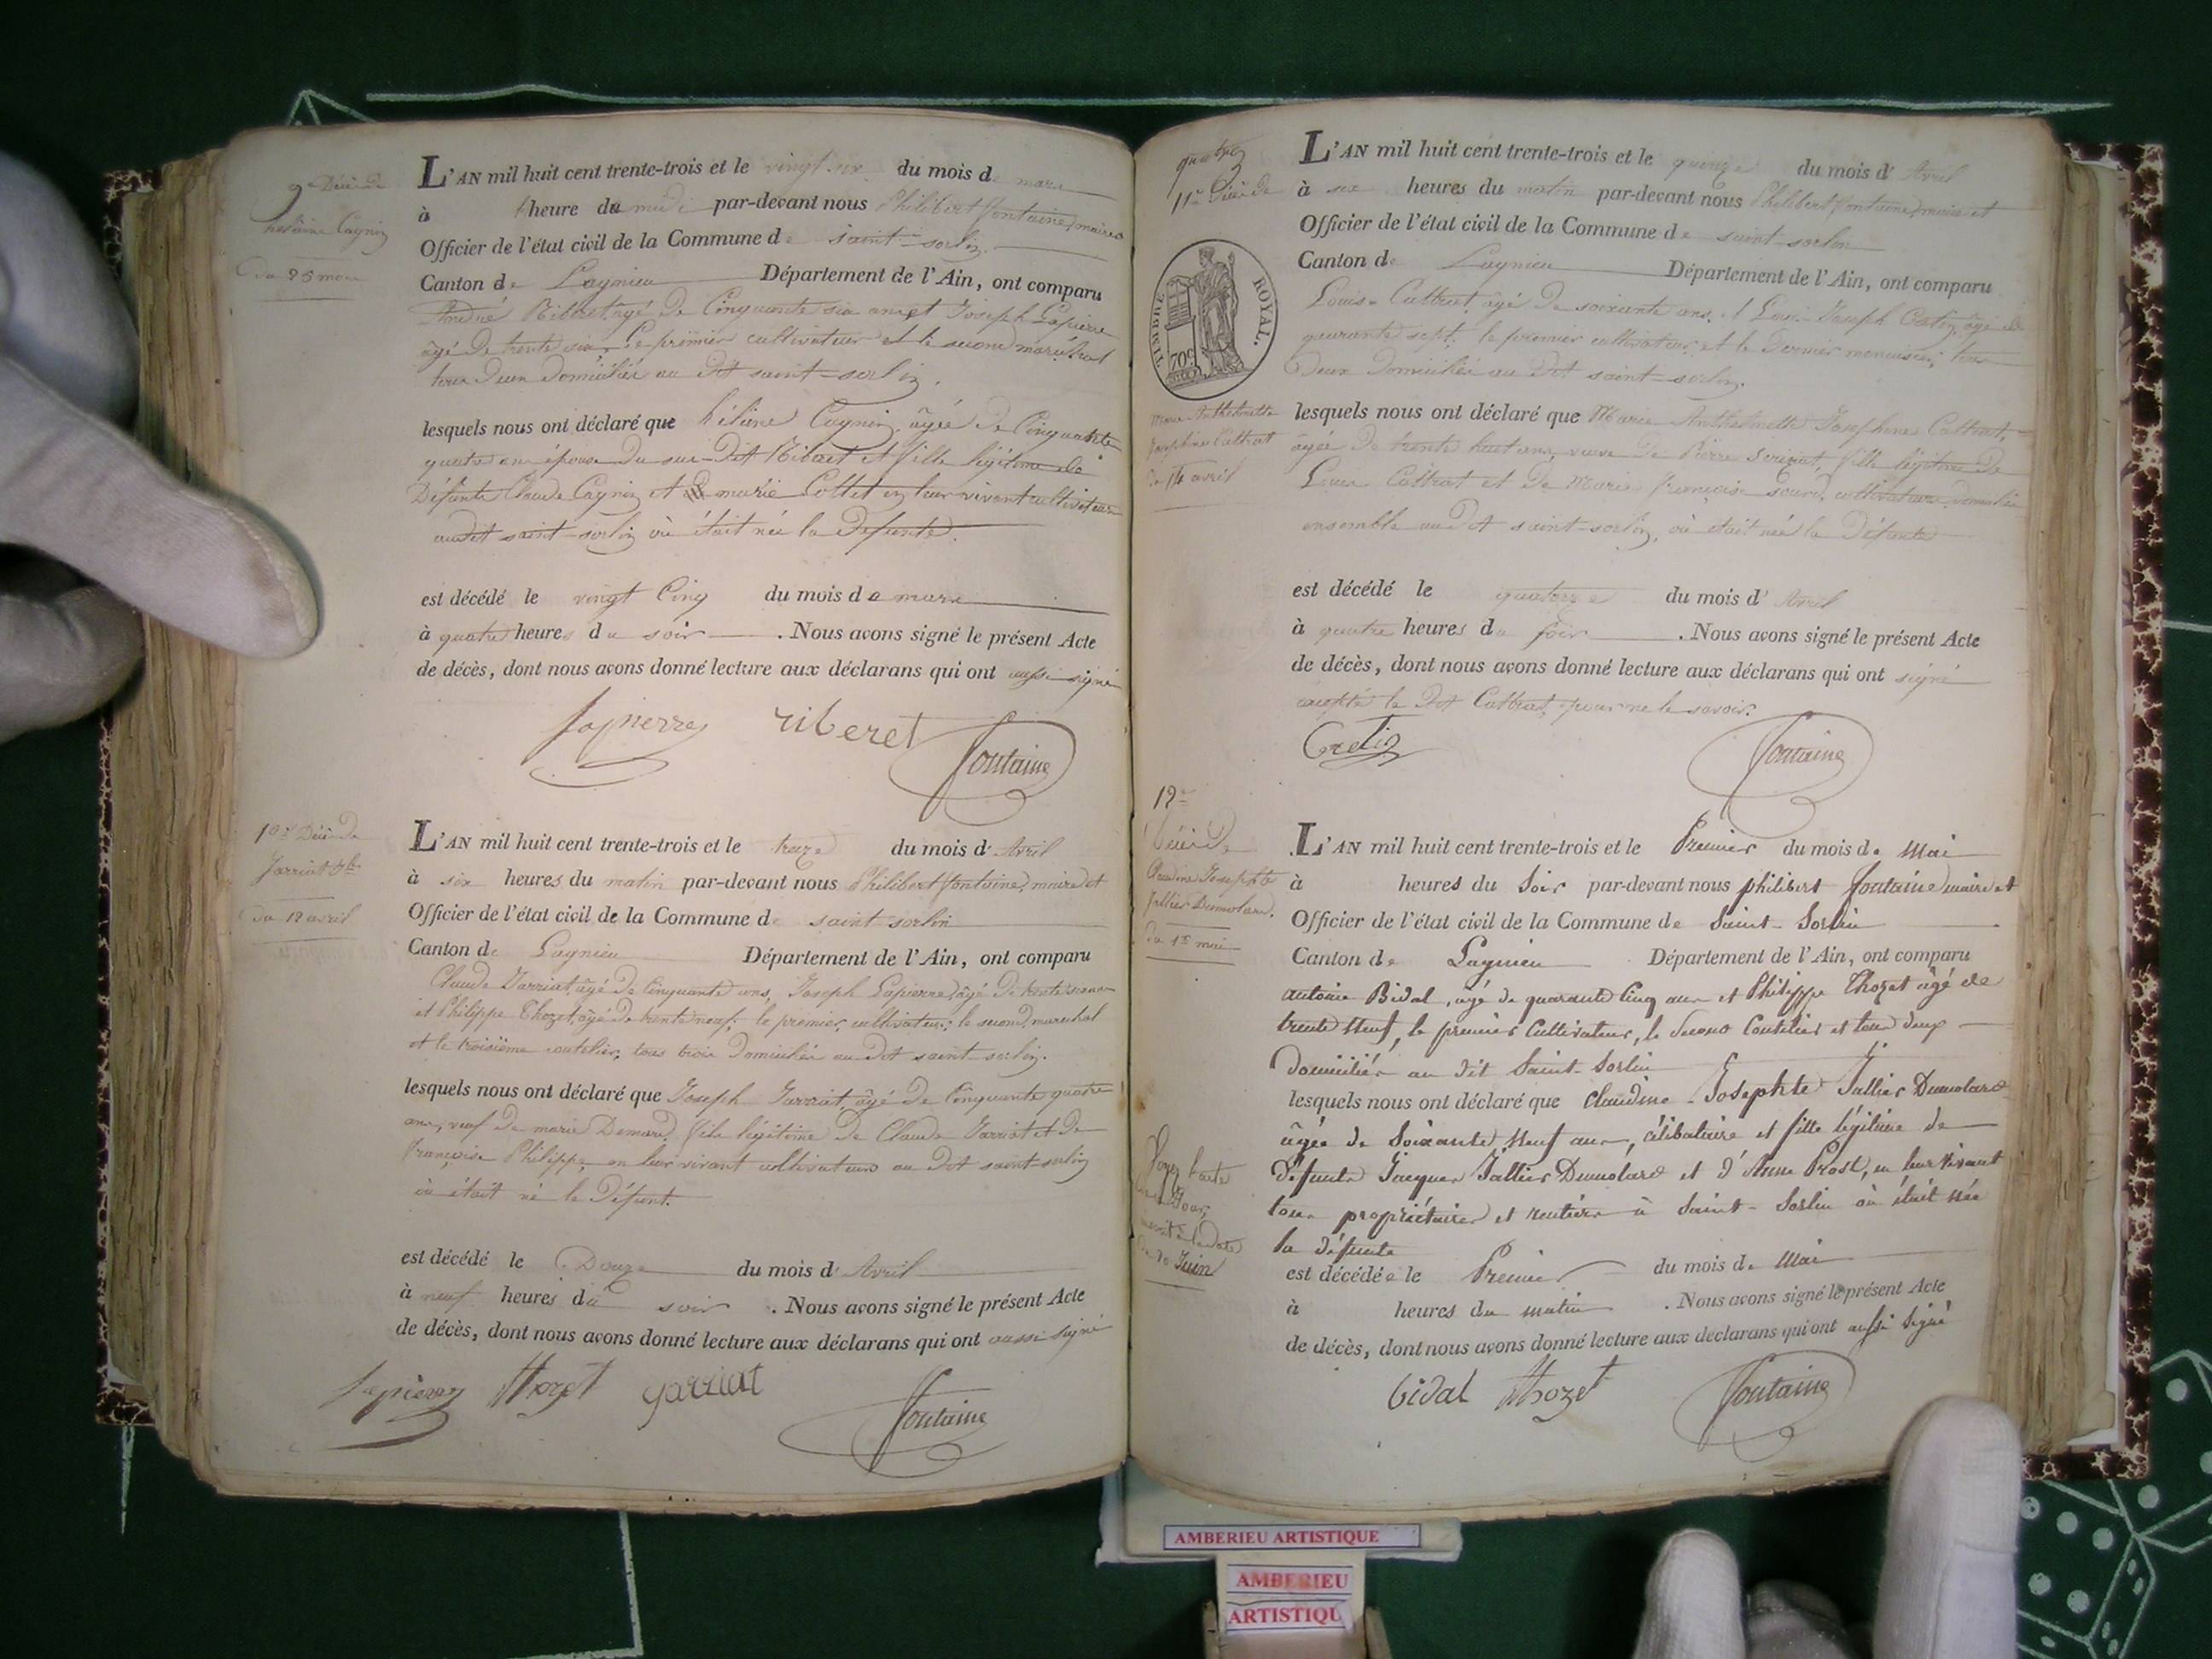 9e Décès de
hélène Cagnin
du 25 mars
L'AN mil huit cent trente-trois et le vingt six du mois de mars
à heure du midi par-devant nous Philibert fontaine, maire
Officier de l'état civil de la Commune de saint-sorlin
Canton de Lagnieu Département de l'Ain, ont comparu
André Ribéret, âgé de Cinquante six ans et Joseph Lapierre
âgé de trente six, le premier cultivateur et le second maréchal
tous deux domiciliés au dit saint-sorlin.
lesquels nous ont déclaré que hélène Cagnin, âgée de Cinquante
quatre ans épouse du sus-dit Ribéret et fille légitime de
défunts Claude Cagnin et marie Cottet en leur vivant cultivateurs
audit saint-sorlin où était née la défunte.
est décédé le vingt Cinq du mois de mars
à quatre heures du soir . Nous avons signé le présent Acte
de décès, dont nous avons donné lecture aux déclarans qui ont aussi signé
Lapierre riberet fontaine
10e Décès de
Jarriat Jh
du 12 avril
L'AN mil huit cent trente-trois et le treize du mois d'Avril
à six heures du matin par-devant nous Philibert fontaine, maire et
Officier de l'état civil de la Commune de saint sorlin
Canton de Lagnieu Département de l'Ain, ont comparu
Claude Jarriat, âgé de Cinquante ans, Joseph Lapierre, âgé de trente six ans
et Philippe Thozet, âgé de trente neuf; le premier, cultivateur; le second, marechal
et le troisième coutelier, tous trois domiciliés au dit saint-sorlin.
lesquels nous ont déclaré que Joseph Jarriat, âgé de Cinquante quatre
ans, veuf de marie Demard, fils légitime de Claude Jarriat et de
françoise Philippe, en leur vivant cultivateurs au dit saint-sorlin
où était né le défunt.
est décédé le Douze du mois d'Avril
à neuf heures du soir . Nous avons signé le présent Acte
de décès, dont nous avons donné lecture aux déclarans qui ont aussi signé
Lapierre thozet jarriat fontaine
quatre
11e Décès de
TIMBRE ROYAL.
70c
marie Anthelmette
Josephine Cattrat
du 14 avril
L'AN mil huit cent trente-trois et le quinze du mois d'Avril
à six heures du matin par-devant nous Philibert fontaine, maire et
Officier de l'état civil de la Commune de saint-sorlin
Canton de Lagnieu Département de l'Ain, ont comparu
Louis Cattrat, âgé de soixante ans, et Louis Joseph Cretin, âgé de
quarante sept, le premier cultivateur et le dernier menuisier, tous
Deux domiciliés au dit saint-sorlin.
lesquels nous ont déclaré que Marie Anthelmette Josephine Cattrat,
âgée de trente huit ans, veuve de Pierre Serizat, fille légitime de
Louis Cattrat et de Marie françoise Sourd, cultivateurs domiciliés
ensemble au dit saint-sorlin, où était née la Défunte
est décédé le quatorze du mois d'Avril
à quatre heures du soir . Nous avons signé le présent Acte
de décès, dont nous avons donné lecture aux déclarans qui ont signé
excepté le dit Cattrat, pour ne le savoir.
Cretin fontaine
12e
Décès de
Claudine Josephte
Jullier Dumolard.
du 1er mai
L'AN mil huit cent trente-trois et le Premier du mois de Mai
à heures du Soir par-devant nous philibert fontaine maire et
Officier de l'état civil de la Commune de Saint-Sorlin
Canton de Lagnieu Département de l'Ain, ont comparu
antoine Bidal, agé de quarante Cinq ans et Philippe Thozet âgé de
trente Neuf, le premier Cultivateur, le Second Coutelier et tous deux
domiciliés au dit Saint-Sorlin
lesquels nous ont déclaré que Claudine-Josephte Jullier Dumolard
âgée de Soixante Neuf ans, célibataire et fille légitime de
Défunts Jacques Jullier Dumolard et d'Anne Prost, en leur vivant
tous propriétaires et rentiers à Saint-Sorlin où était née
la défunte
est décédée le Premier du mois de Mai
à heures du matin . Nous avons signé le présent Acte
de décès, dont nous avons donné lecture aux déclarans qui ont aussi signé
Voyez l'acte
Jour,
inscrit à la date
de Juin
bidal thozet fontaine
AMBERIEU ARTISTIQUE
AMBERIEU
ARTISTIQU